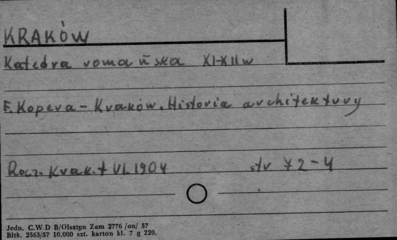 KRAKÓW
Katedra romańska XI-XII w
F. Kopera - Kraków. Historia architektury
Rocz. Krak. t VI. 1904 str 72-4
Jedn. C.W.D B/Olsztyn Zam 2776 /on/ 57
Bltk. 2563/57 10.000 szt. karton kl. 7 g 220.